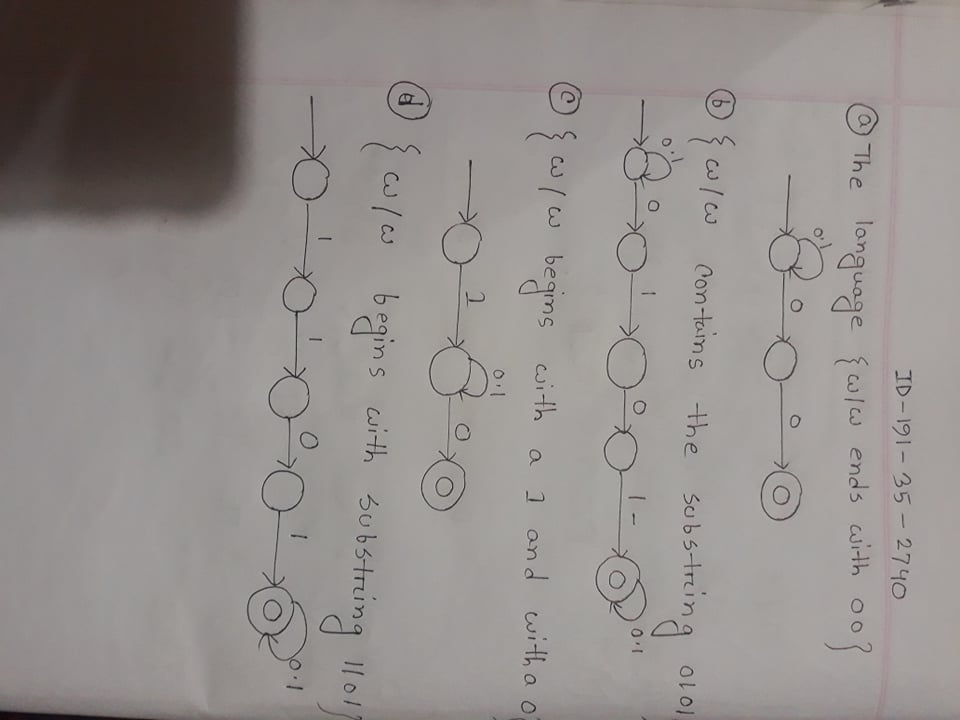 ID-191-35-2740
(a) The language {w/w ends with 00}
0.1 0 0
(b) {w/w contains the substring 0101
0.1 0 1 0 1- 0.1
(c) {w/w begins with a 1 and with a 0
1 0.1 0
(d) {w/w begins with substring 1101}
1 1 0 1 0.1